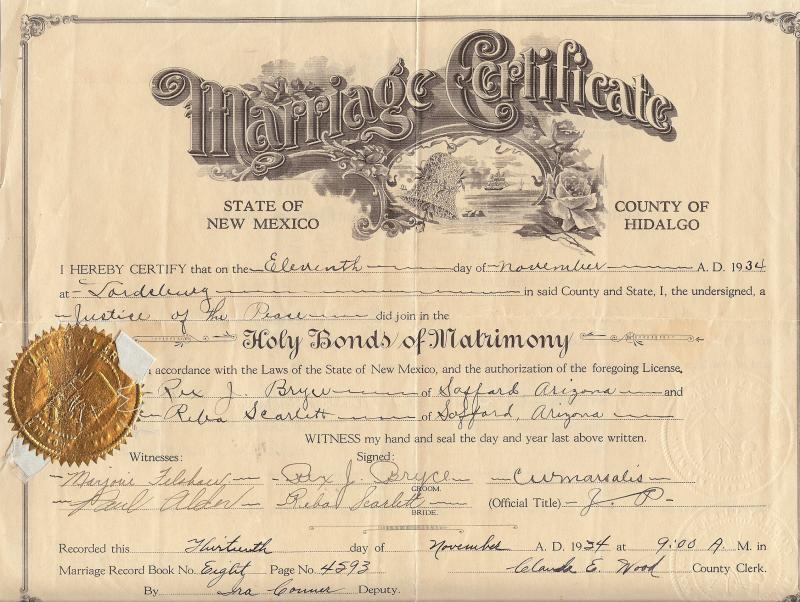 Marriage Certificate
STATE OF NEW MEXICO
COUNTY OF HIDALGO
I HEREBY CERTIFY that on the Eleventh day of November A. D. 1934
at Lordsburg in said County and State, I, the undersigned, a
Justice of the Peace did join in the
Holy Bonds of Matrimony
in accordance with the Laws of the State of New Mexico, and the authorization of the foregoing License,
Rex J. Bryce of Safford Arizona and
Reba Scarlett of Safford, Arizona
WITNESS my hand and seal the day and year last above written.
Witnesses: Signed:
Marjorie Rex J. Bryce C W Marsalis
GROOM.
Paul Alder Reba Scarlett (Official Title) J. P.
BRIDE.
Recorded this Thirteenth day of November A. D. 1934 at 9:00 A. M. in
Marriage Record Book No. Eight Page No. 4593 Claude E. Wood County Clerk.
By Ira Conner Deputy.